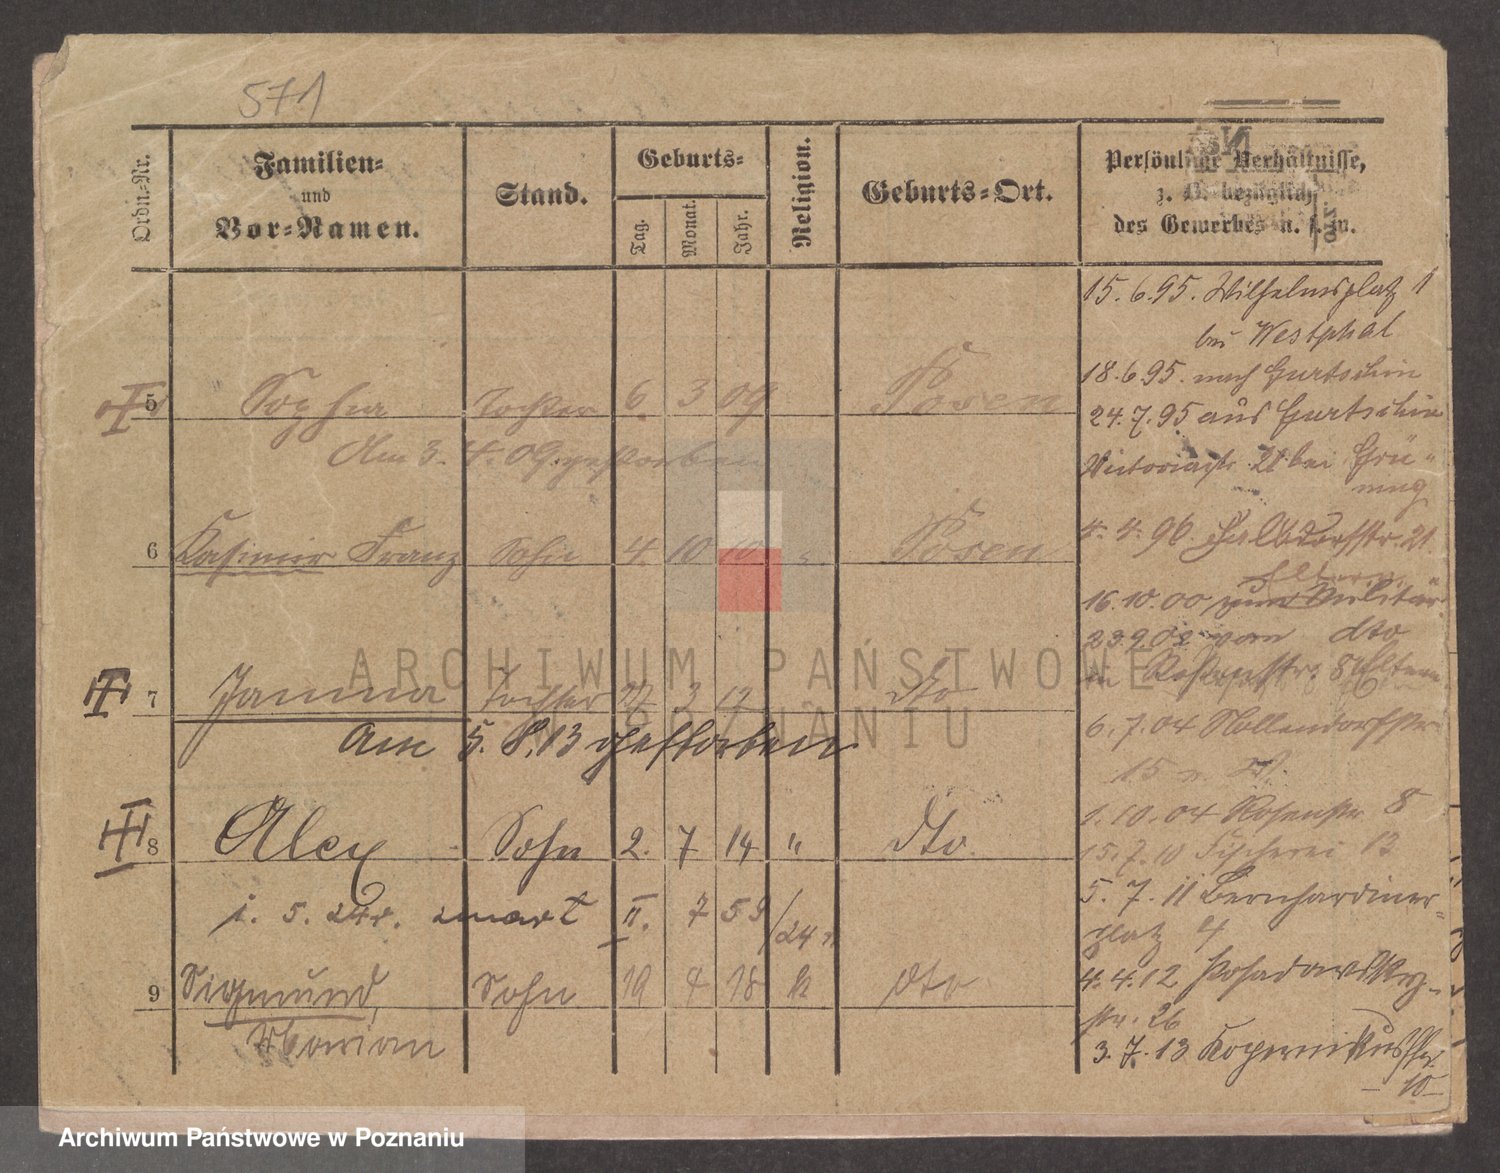 571
Ordn.-Nr.
Familien-
und
Vor-Namen.
Stand.
Geburts-
Tag.
Monat.
Jahr.
Religion.
Geburts-Ort.
Persönliche Verhältnisse,
z. B. bezüglich
des Gewerbes u. s. w.
5 Sophia Tochter 6. 3 09 Posen
Am 3. 4. 09 gestorben
6 Kasimir Franz Sohn 4. 10 10 Posen
7 Janina Tochter 3 12 dto
Am 5. 8. 13 gestorben
8 Alex Sohn 2. 7 14 " dto.
zmart II. 7 59/24
9 Sigmund, Sohn 19 4 18 k dto
Marian
15. 6. 95. Wilhelmsplatz 1
bei Westphal
18. 6 95. nach Gurtschin
24. 7. 95 aus Gurtschin
Victoriastr. 21 bei Grü-
ning
4. 4. 96. Halbdorfstr. 21.
Eltern
16. 10. 00 zum Militär
23 9 02 vom dto
Rosenstr. 8 Eltern
6. 7. 04 Nollendorfstr
15
1. 10. 04 Rosenstr 8
15. 7. 10 Fischerei 12
5. 7. 11 Bernhardiner-
platz 4
4. 4. 12 Posadowsky-
str. 26
3. 7. 13 Kopernikusstr.
10
ARCHIWUM PAŃSTWOWE
W POZNANIU
Archiwum Państwowe w Poznaniu